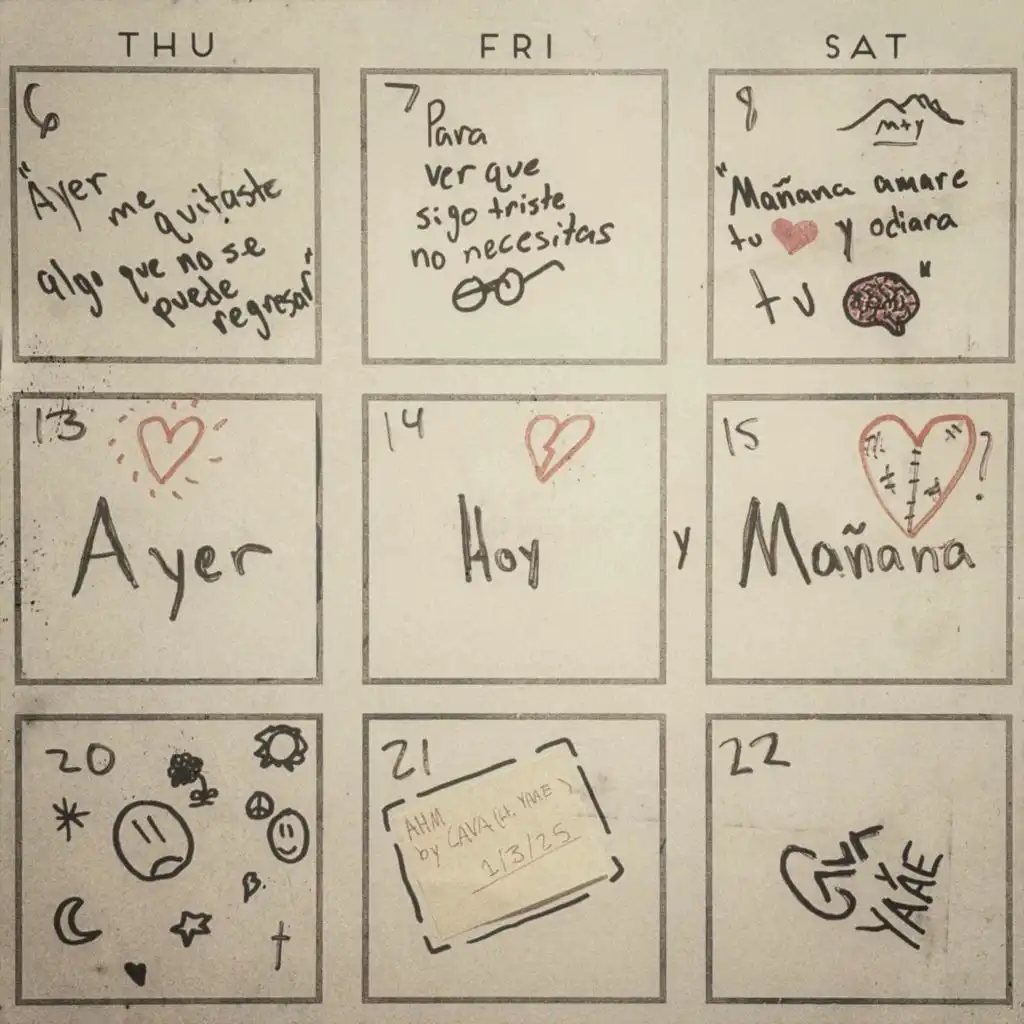 THU FRI SAT
6
"Ayer
me
quitaste
algo que no se
puede
regresar"
7
Para
ver que
sigo triste
no necesitas
8
m+y
"Mañana amare
tu y odiara
tu "
13
Ayer
14
Hoy
y
15
?
Mañana
20
21
AHM
by CAVA (ft. YAAE)
1/3/25
22
YAAE